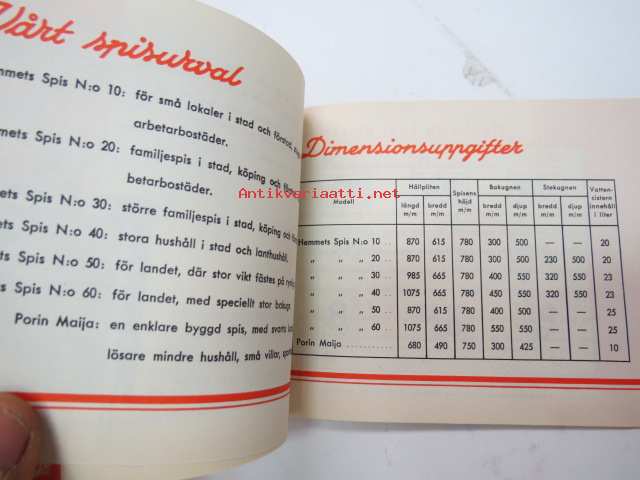 Vårt spisurval
Hemmets Spis N:o 10: för små lokaler i stad och
arbetarbostäder.
Hemmets Spis N:o 20: familjespis i stad, köping och
betarbostäder.
Spis N:o 30: större familjespis i stad, köping och
Spis N:o 40: stora hushåll i stad och lanthushåll.
Spis N:o 50: för landet, där stor vikt fästes på
Spis N:o 60: för landet, med speciellt stor bakugn.
Porin Maija: en enklare byggd spis, med svarta
lösare mindre hushåll, små villar,
Antikvariaatti.net
Dimensionsuppgifter
Modell Hällpliten Spisens höjd m/m Bakugnen Stekugnen Vatten-cistern innehåll i liter
längd m/m bredd m/m bredd m/m djup m/m bredd m/m djup m/m
Hemmets Spis N:o 10 .. 870 615 780 300 500 — — 20
„ „ „ 20 .. 870 615 780 300 500 230 500 20
„ „ „ 30 .. 985 665 780 400 550 320 550 23
„ „ „ 40 .. 1075 665 780 450 550 320 550 23
„ „ „ 50 .. 1075 665 780 400 550 — — 25
„ „ „ 60 .. 1075 665 780 550 550 — — 25
Porin Maija 680 490 750 300 425 — — 10